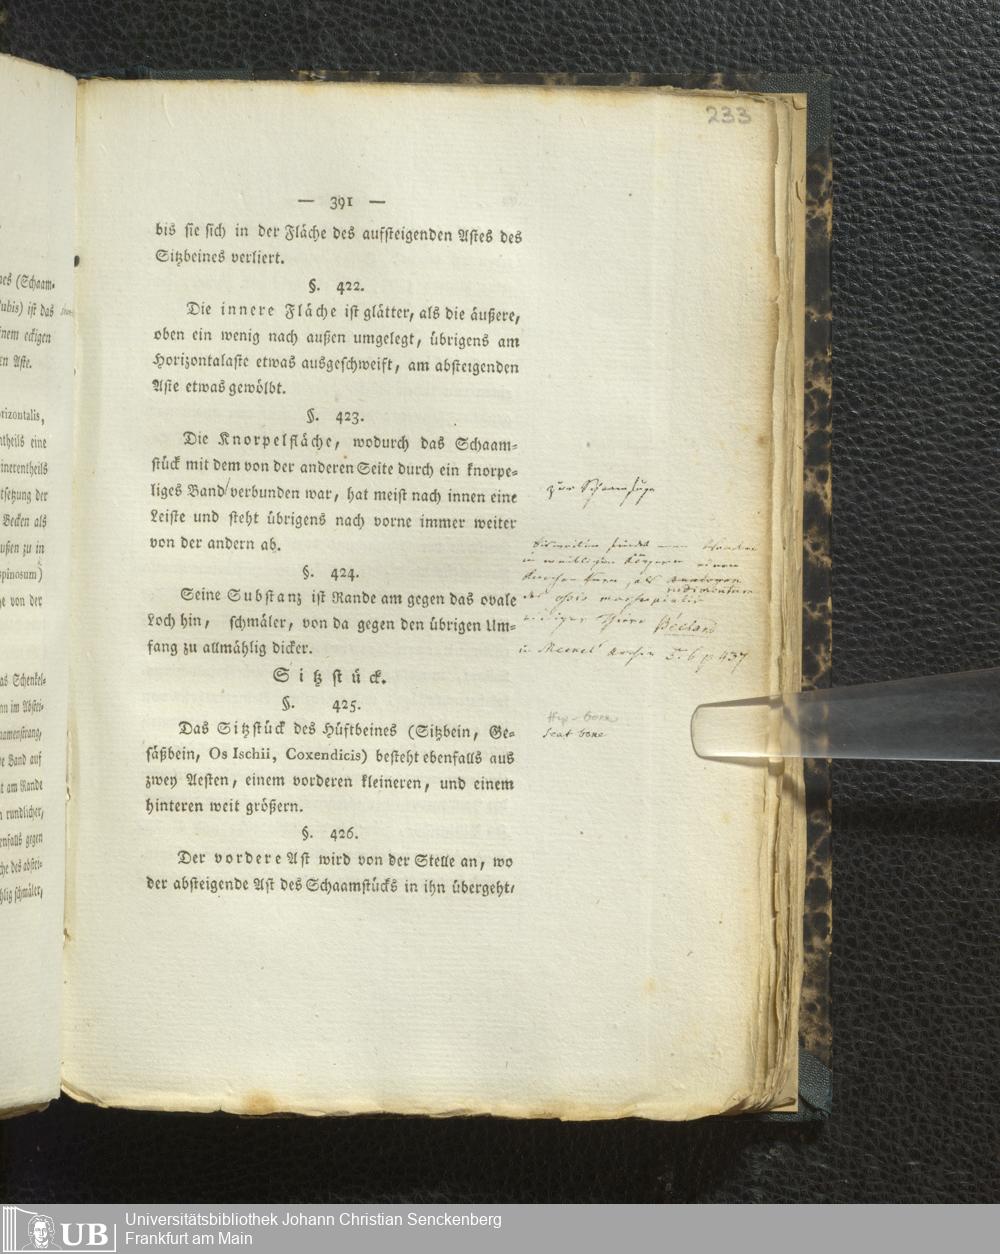 233
— 391 —
bis sie sich in der Fläche des aufsteigenden Astes des
Sitzbeines verliert.
§. 422.
Die innere Fläche ist glätter, als die äußere,
oben ein wenig nach außen umgelegt, übrigens am
Horizontalaste etwas ausgeschweift, am absteigenden
Aste etwas gewölbt.
§. 423.
Die Knorpelfläche, wodurch das Schaam-
stück mit dem von der anderen Seite durch ein knorpe-
liges Band verbunden war, hat meist nach innen eine
Leiste und steht übrigens nach vorne immer weiter
von der andern ab.
§. 424.
Seine Substanz ist Rande am gegen das ovale
Loch hin, schmäler, von da gegen den übrigen Um-
fang zu allmählig dicker.
Sitzstück.
§. 425.
Das Sitzstück des Hüftbeines (Sitzbein, Ge-
säßbein, Os Ischii, Coxendicis) besteht ebenfalls aus
zwey Aesten, einem vorderen kleineren, und einem
hinteren weit größern.
§. 426.
Der vordere Ast wird von der Stelle an, wo
der absteigende Ast des Schaamstücks in ihn übergeht,
zur Schaamfuge
rudimentum
des ossis marsupialis
in Meckel T. 6 p 437
Hip-bone
Seat bone
nes (Schaam-
Pubis) ist das
inem eckigen
en Aste.
rizontalis,
ntheils eine
inerentheils
tsetzung der
Becken als
ußen zu in
spinosum)
ge von der
as Schenkel-
nn im Abstei-
samenstrang,
e Band auf
t am Rande
n rundlicher,
enfalls gegen
che des abstei-
hlig schmäler,
UB
Universitätsbibliothek Johann Christian Senckenberg
Frankfurt am Main